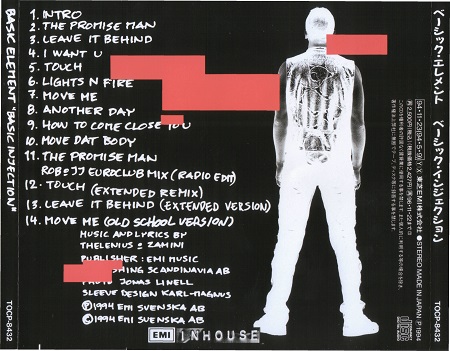 BASIC ELEMENT "BASIC INJECTION"
TOCP-8432
1. INTRO
2. THE PROMISE MAN
3. LEAVE IT BEHIND
4. I WANT U
5. TOUCH
6. LIGHTS N FIRE
7. MOVE ME
8. ANOTHER DAY
9. HOW TO COME CLOSE YOU
10. MOVE DAT BODY
11. THE PROMISE MAN
ROB & JJ EUROCLUB MIX (RADIO EDIT)
12. TOUCH (EXTENDED REMIX)
13. LEAVE IT BEHIND (EXTENDED VERSION)
14. MOVE ME (OLD SCHOOL VERSION)
MUSIC AND LYRICS BY
THELENIUS & ZAMINI
PUBLISHER: EMI MUSIC
SHING SCANDINAVIA AB
JONAS LINELL
SLEEVE DESIGN KARL-MAGNUS
℗ 1994 EMI SVENSKA AB
© 1994 EMI SVENSKA AB
EMI INHOUSE
ベーシック・エレメント ベーシック・インジェクション
東芝EMI株式会社 STEREO MADE IN JAPAN P1994
TOCP-8432